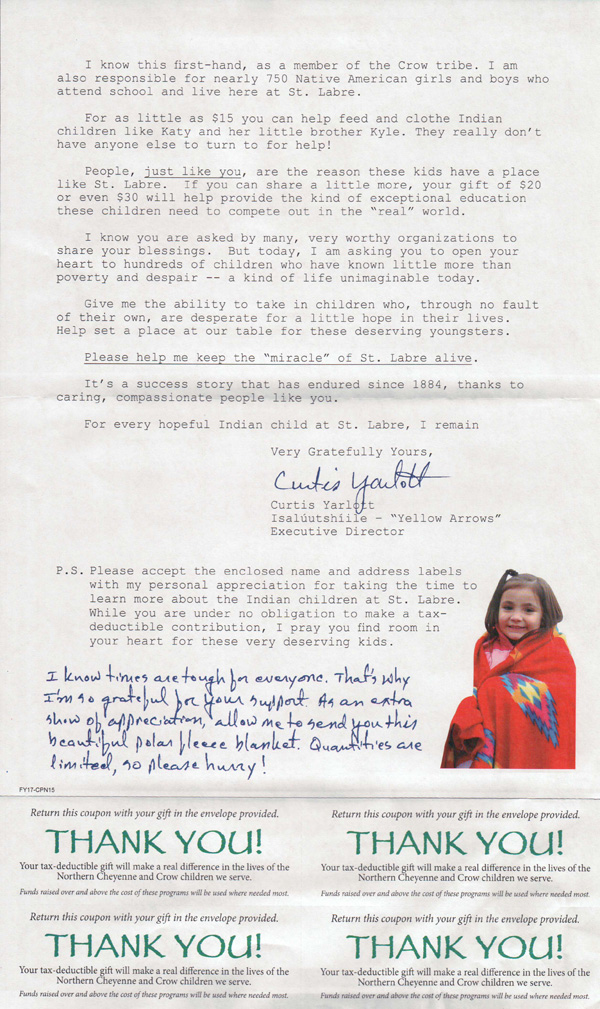 I know this first-hand, as a member of the Crow tribe. I am
also responsible for nearly 750 Native American girls and boys who
attend school and live here at St. Labre.
For as little as $15 you can help feed and clothe Indian
children like Katy and her little brother Kyle. They really don't
have anyone else to turn to for help!
People, just like you, are the reason these kids have a place
like St. Labre. If you can share a little more, your gift of $20
or even $30 will help provide the kind of exceptional education
these children need to compete out in the “real” world.
I know you are asked by many, very worthy organizations to
share your blessings. But today, I am asking you to open your
heart to hundreds of children who have known little more than
poverty and despair -- a kind of life unimaginable today.
Give me the ability to take in children who, through no fault
of their own, are desperate for a little hope in their lives.
Help set a place at our table for these deserving youngsters.
Please help me keep the “miracle” of St. Labre alive.
It's a success story that has endured since 1884, thanks to
caring, compassionate people like you.
For every hopeful Indian child at St. Labre, I remain
Very Gratefully Yours,
Curtis Yarlott
Curtis Yarlott
Isalúutshiile – “Yellow Arrows”
Executive Director
P.S. Please accept the enclosed name and address labels
with my personal appreciation for taking the time to
learn more about the Indian children at St. Labre.
While you are under no obligation to make a tax-
deductible contribution, I pray you find room in
your heart for these very deserving kids.
I know times are tough for everyone. That's why
I'm so grateful for your support. As an extra
show of appreciation, allow me to send you this
beautiful polar fleece blanket. Quantities are
limited, so please hurry!
FY17-CPN15
Return this coupon with your gift in the envelope provided.
THANK YOU!
Your tax-deductible gift will make a real difference in the lives of the
Northern Cheyenne and Crow children we serve.
Funds raised over and above the cost of these programs will be used where needed most.
Return this coupon with your gift in the envelope provided.
THANK YOU!
Your tax-deductible gift will make a real difference in the lives of the
Northern Cheyenne and Crow children we serve.
Funds raised over and above the cost of these programs will be used where needed most.
Return this coupon with your gift in the envelope provided.
THANK YOU!
Your tax-deductible gift will make a real difference in the lives of the
Northern Cheyenne and Crow children we serve.
Funds raised over and above the cost of these programs will be used where needed most.
Return this coupon with your gift in the envelope provided.
THANK YOU!
Your tax-deductible gift will make a real difference in the lives of the
Northern Cheyenne and Crow children we serve.
Funds raised over and above the cost of these programs will be used where needed most.